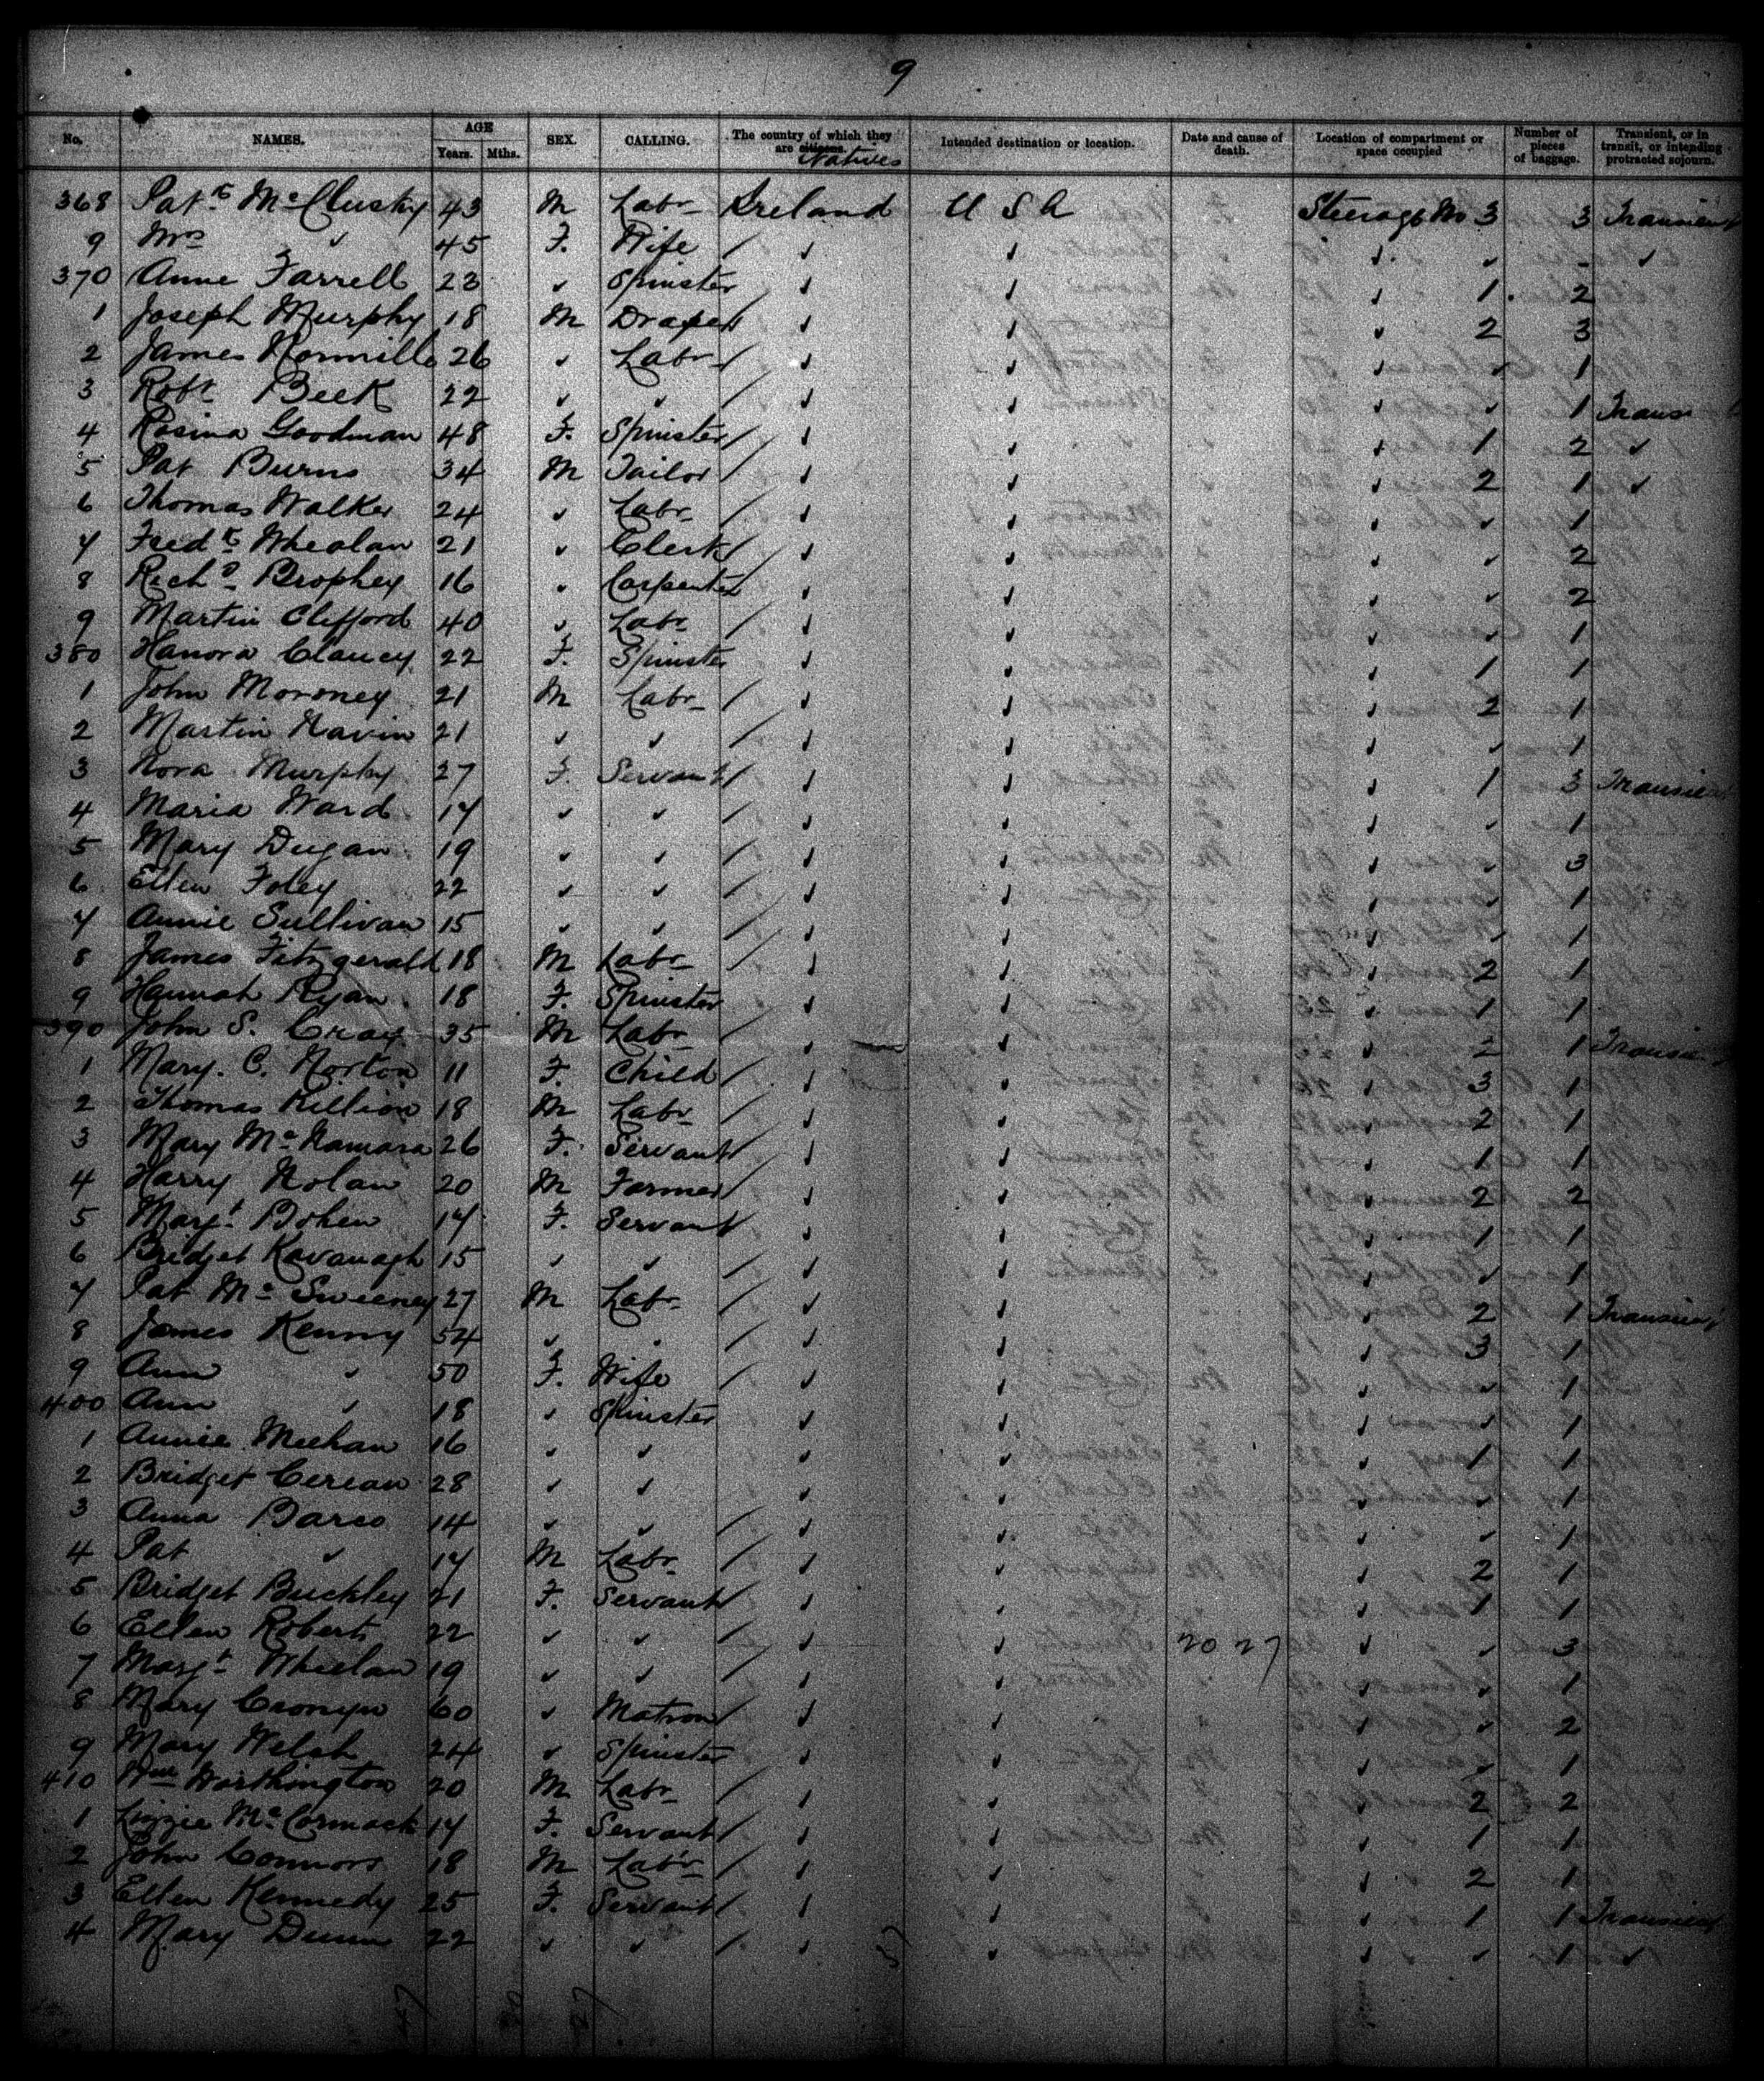 9
No. NAMES. AGE Years. Mths. SEX. CALLING. The country of which they are citizens. Natives Intended destination or location. Date and cause of death. Location of compartment or space occupied Number of pieces of baggage. Transient, or in transit, or intending protracted sojourn.
368 Patk McClusky 43 M Labr Ireland U S A Steerage No 3 3 Transient
9 Mrs ✓ 45 F. Wife / ✓ ✓ ✓ ✓ - ✓
370 Anne Farrell 23 ✓ Spinster ✓ ✓ ✓ 1 2
1 Joseph Murphy 18 M Draper ✓ ✓ ✓ 2 3
2 James Normille 26 ✓ Labr / ✓ ✓ ✓ ✓ 1
3 Robt Beek 22 ✓ ✓ / ✓ ✓ ✓ ✓ 1 Transi
4 Rosina Goodman 48 F. Spinster / ✓ ✓ ✓ 1 2 ✓
5 Pat Burns 34 M Tailor / ✓ ✓ ✓ 2 1 ✓
6 Thomas Walker 24 ✓ Labr / ✓ ✓ ✓ ✓ 1
7 Fredk Whealan 21 ✓ Clerk / ✓ ✓ ✓ ✓ 2
8 Richd Brophey 16 ✓ Carpenter ✓ ✓ ✓ ✓ 2
9 Martin Clifford 40 ✓ Labr / ✓ ✓ ✓ ✓ 1
380 Hanora Clancy 22 F. Spinster ✓ ✓ ✓ 1 1
1 John Moroney 21 M Labr / ✓ ✓ ✓ 2 1
2 Martin Navin 21 ✓ ✓ / ✓ ✓ ✓ ✓ 1
3 Nora Murphy 27 F. Servant / ✓ ✓ ✓ 1 3 Transient
4 Maria Ward 17 ✓ ✓ / ✓ ✓ ✓ ✓ 1
5 Mary Dugan 19 ✓ ✓ / ✓ ✓ ✓ ✓ 3
6 Ellen Foley 22 ✓ ✓ / ✓ ✓ ✓ ✓ 1
7 Annie Sullivan 15 ✓ ✓ / ✓ ✓ ✓ ✓ 1
8 James Fitzgerald 18 M Labr / ✓ ✓ ✓ 2 1
9 Hannah Ryan 18 F. Spinster ✓ ✓ ✓ 1 1
390 John S. Cray 35 M Labr / ✓ ✓ ✓ 2 1 Transient
1 Mary. C. Norton 11 F. Child / ✓ ✓ ✓ 3 1
2 Thomas Killion 18 M Labr / ✓ ✓ ✓ 2 1
3 Mary McNamara 26 F. Servant / ✓ ✓ ✓ 1 1
4 Harry Nolan 20 M Farmer / ✓ ✓ ✓ 2 2
5 Margt Bohen 17 F. Servant ✓ ✓ ✓ 1 1
6 Bridget Kavanagh 15 ✓ ✓ / ✓ ✓ ✓ ✓ 1
7 Pat McSweeney 27 M Labr / ✓ ✓ ✓ 2 1 Transient
8 James Kenny 54 ✓ ✓ / ✓ ✓ ✓ 3 1
9 Ann ✓ 50 F. Wife / ✓ ✓ ✓ ✓ 1
400 Ann ✓ 18 ✓ Spinster ✓ ✓ ✓ ✓ 1
1 Annie Meehan 16 ✓ ✓ ✓ ✓ ✓ 1 1
2 Bridget Cerean 28 ✓ ✓ ✓ ✓ ✓ ✓ 1
3 Anna Barso 14 ✓ ✓ / ✓ ✓ ✓ ✓ 1
4 Pat ✓ 17 M Labr / ✓ ✓ ✓ 2 1
5 Bridget Buckley 21 F. Servant ✓ ✓ ✓ 1 1
6 Ellen Roberts 22 ✓ ✓ / ✓ ✓ 20 27 ✓ ✓ 3
7 Margt Whelan 19 ✓ ✓ / ✓ ✓ ✓ ✓ 1
8 Mary Cronyn 60 ✓ Matron / ✓ ✓ ✓ ✓ 2
9 Mary Welsh 24 ✓ Spinster ✓ ✓ ✓ ✓ 1
410 Wm Worthington 20 M Labr / ✓ ✓ ✓ 2 2
1 Lizzie McCormack 17 F. Servant / ✓ ✓ ✓ 1 1
2 John Connors 18 M Labr / ✓ ✓ ✓ 2 1
3 Ellen Kennedy 25 F. Servant / ✓ ✓ ✓ 1 1 Transient
4 Mary Dunn 22 ✓ ✓ / ✓ ✓ ✓ ✓ 1 ✓